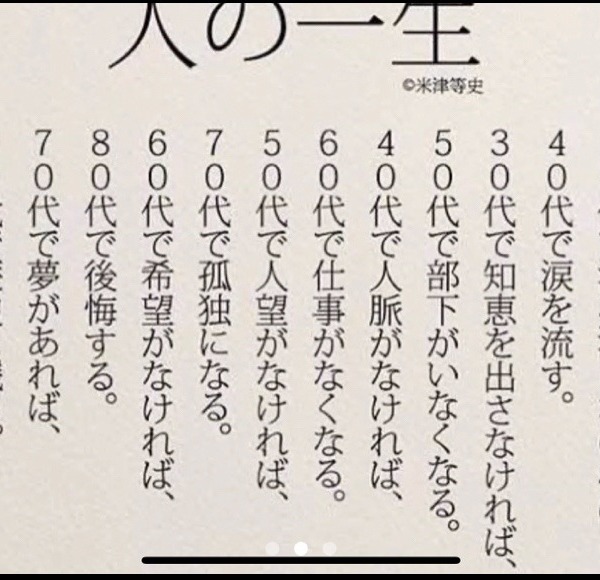 人の一生
©米津等史
40代で涙を流す。
30代で知恵を出さなければ、
50代で部下がいなくなる。
40代で人脈がなければ、
60代で仕事がなくなる。
50代で人望がなければ、
70代で孤独になる。
60代で希望がなければ、
80代で後悔する。
70代で夢があれば、